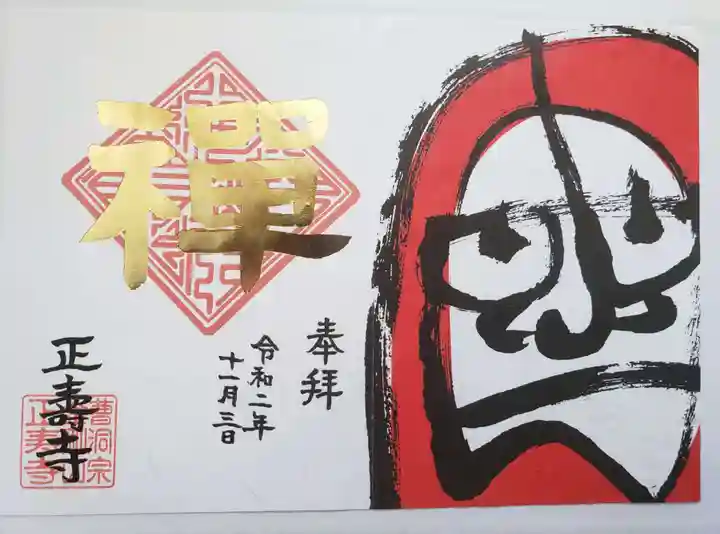 奉拝
令和二年
十一月三日
禪
正壽寺
曹洞宗
正寿寺